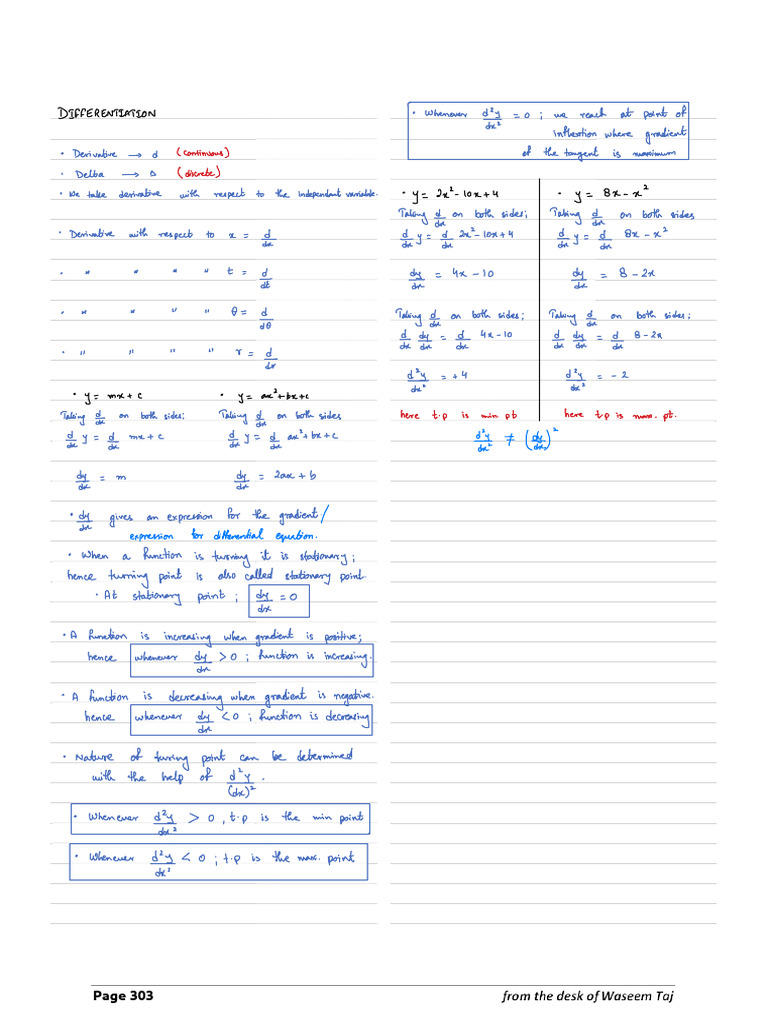 DIFFERENTIATION
• Derivative → d (continuous)
• Delta → Δ (discrete)
• We take derivative with respect to the independant variable.
• Derivative with respect to x = d/dx
• " " " " t = d/dt
• " " " " θ = d/dθ
• " " " " r = d/dr
• y = mx + c
Taking d/dx on both sides;
d/dx y = d/dx mx + c
dy/dx = m
• y = ax²+bx+c
Taking d/dx on both sides
d/dx y = d/dx ax²+bx+c
dy/dx = 2ax + b
• dy/dx gives an expression for the gradient/
expression for differential equation.
• When a function is turning it is stationary;
hence turning point is also called stationary point.
• At stationary point ; dy/dx = 0
• A function is increasing when gradient is positive;
hence whenever dy/dx > 0 ; function is increasing.
• A function is decreasing when gradient is negative.
hence whenever dy/dx < 0 ; function is decreasing
• Nature of turing point can be determined
with the help of d²y/(dx)² .
• Whenever d²y/dx² > 0 , t.p is the min point
• Whenever d²y/dx² < 0 ; t.p is the max. point
• Whenever d²y/dx² = 0 ; we reach at point of
inflection where gradient
of the tangent is maximum
• y = 2x² - 10x + 4
Taking d/dx on both sides;
d/dx y = d/dx 2x² - 10x + 4
dy/dx = 4x - 10
Taking d/dx on both sides;
d/dx dy/dx = d/dx 4x - 10
d²y/dx² = + 4
here t.p is min pt
• y = 8x - x²
Taking d/dx on both sides
d/dx y = d/dx 8x - x²
dy/dx = 8 - 2x
Taking d/dx on both sides;
d/dx dy/dx = d/dx 8 - 2x
d²y/dx² = - 2
here t.p is max. pt.
d²y/dx² ≠ (dy/dx)²
Page 303
from the desk of Waseem Taj